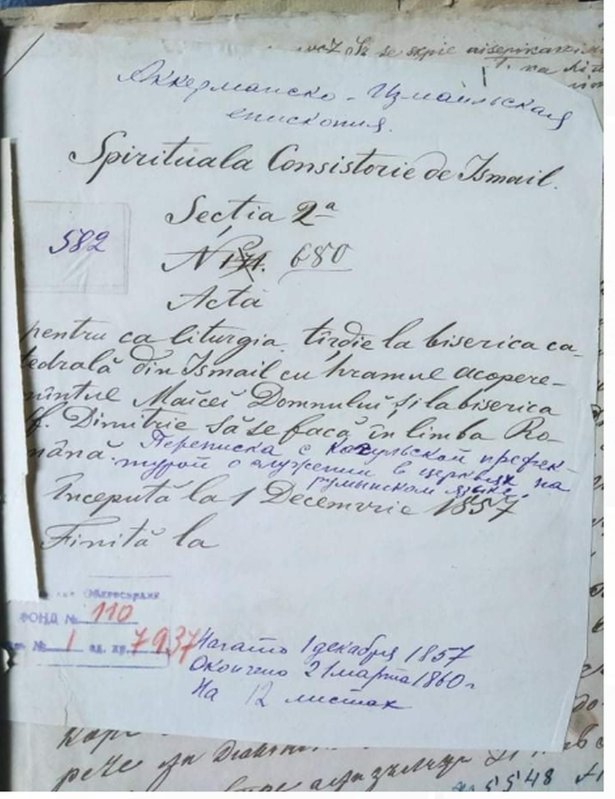 se scrie
Аккерманско-Измаильская
епископия.
Spirituala Consistorie de Ismail.
Secția 2ª
582
N 171. 680
Acta
pentru ca liturgia tîrdie la biserica ca-
tedrală din Ismail cu hramul acopere-
mîntul Maicei Domnului, și la biserica
sf. Dimitrie să se facă în limba Ro-
mână. Переписка с Кагульской префек-
турой о служении в церквях на
румынском языке.
Începută la 1 Decemvrie 1857
Finită la
ФОНД № 110
№ 1 ед. хр. 7937
Начато 1 декабря 1857
Окончено 21 марта 1860 г
На 12 листах
5548